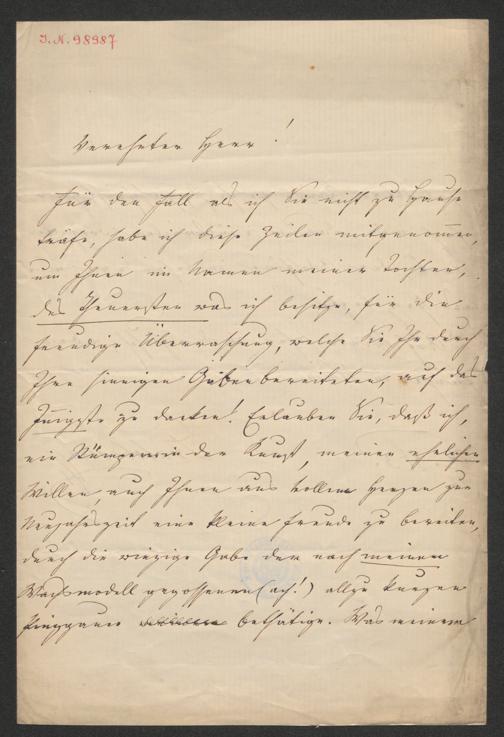 I. N. 98987
Verehrter Herr!
Für den Fall als ich Sie nicht zu Hause
träfe, habe ich diese Zeilen mitgenommen,
um Ihnen im Namen meiner Tochter,
des Theuersten was ich besitze, für die
freudige Überraschung, welche Sie Ihr durch
Ihre sinnigen Gaben bereiteten, auf das
Innigste zu danken! Erlauben Sie, daß ich,
ein Stümper in der Kunst, meinen ehrlichen
Willen, auch Ihnen aus vollem Herzen zur
Neujahrszeit eine kleine Freude zu bereiten,
durch die winzige Gabe des nach meinem
Wachsmodell gegossenen (ach!) allzu kurzen
bethätige. Was meinem